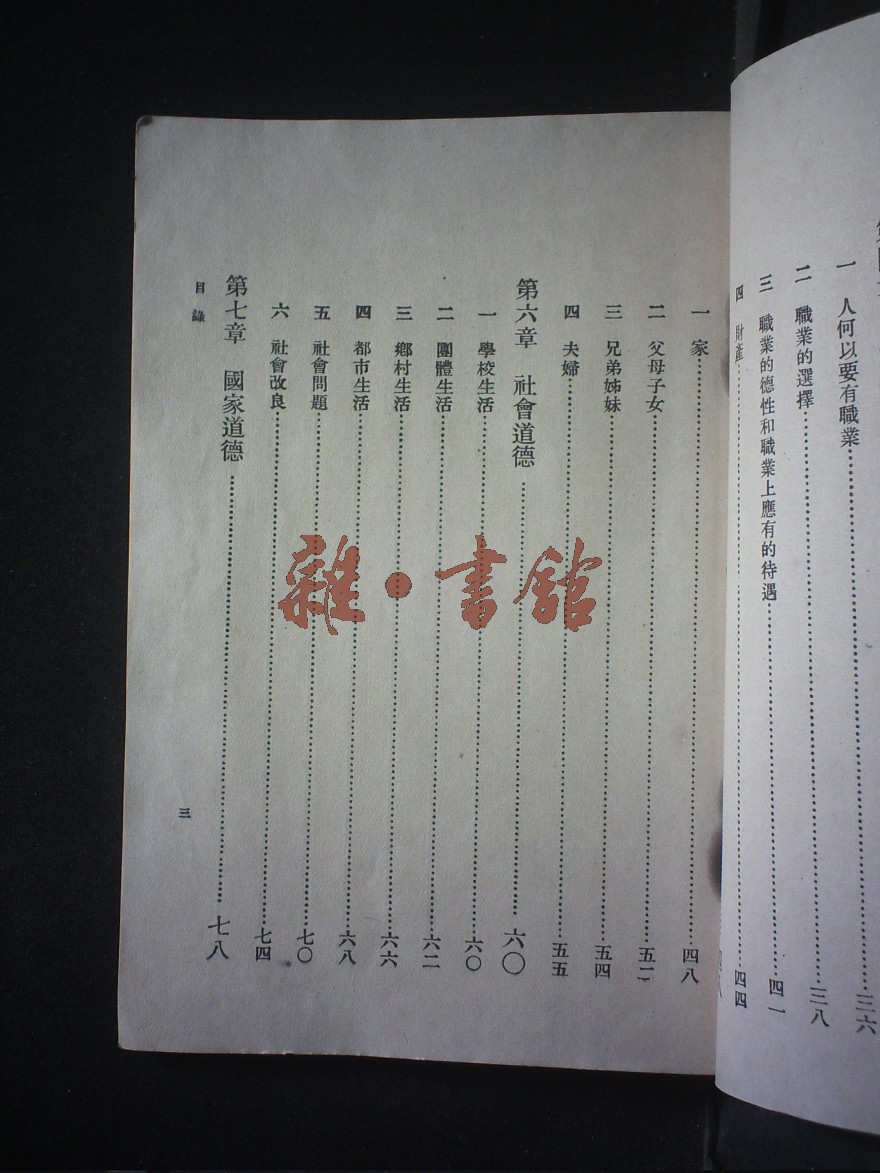 一 人何以要有職業 三六
二 職業的選擇 三八
三 職業的德性和職業上應有的待遇 四一
四 財產 四四
一 家 四八
二 父母子女 五二
三 兄弟姊妹 五四
四 夫婦 五五
第六章 社會道德 六〇
一 學校生活 六〇
二 團體生活 六二
三 鄉村生活 六六
四 都市生活 六八
五 社會問題 七〇
六 社會改良 七四
第七章 國家道德 七八
目錄
三
雜·書館